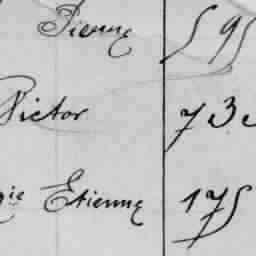 Pierre 595
Victor 73
gie Etienne 175